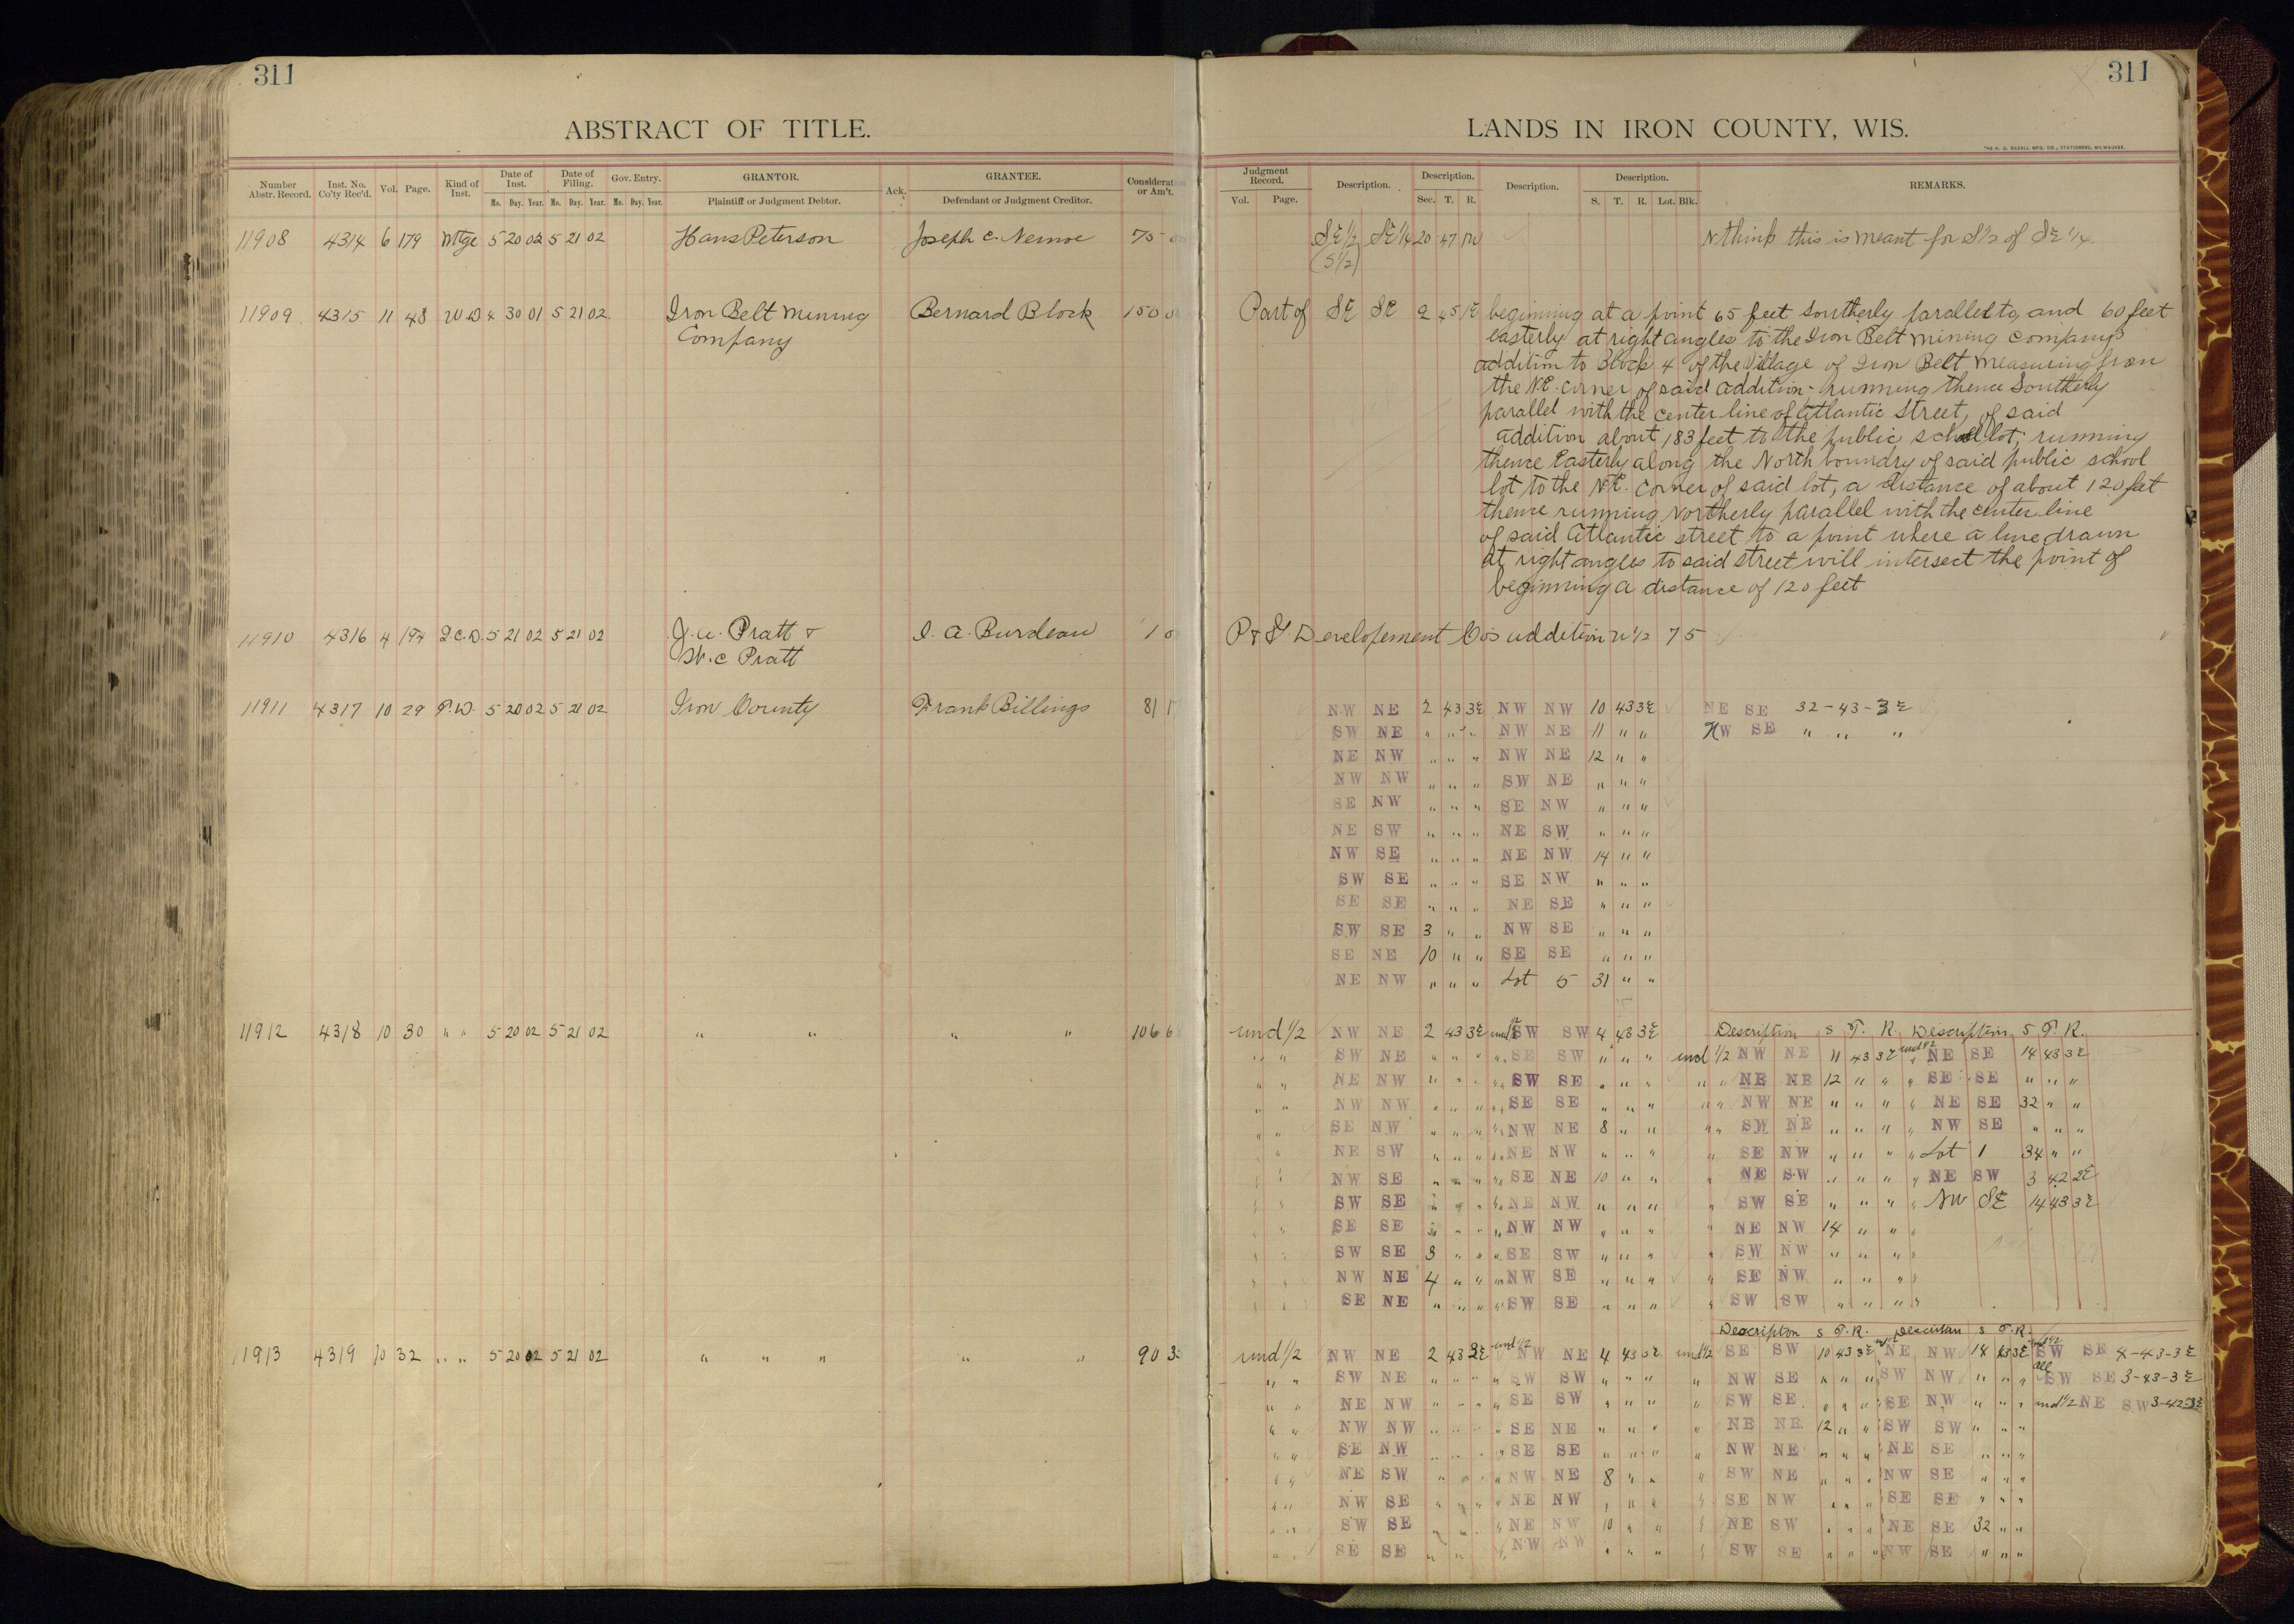 311
ABSTRACT OF TITLE.
Number Abstr. Record. Inst. No. Co'ty Rec'd. Vol. Page. Kind of Inst. Date of Inst. Mo. Day. Year. Date of Filing. Mo. Day. Year. Gov. Entry. Mo. Day. Year. GRANTOR. Plaintiff or Judgment Debtor. Ack. GRANTEE. Defendant or Judgment Creditor. or Am't.
11908 4314 6 179 Mtge 5 20 02 5 21 02 Hans Peterson Joseph C. 75
11909 4315 11 48 W D 4 30 01 5 21 02 Iron Belt Mining Bernard Block 150
Company
11910 4316 4 194 Q.C.D. 5 21 02 5 21 02 J. W. Pratt & I. A. Burdeau 1
W. C Pratt
11911 4317 10 29 T.D. 5 20 02 5 21 02 Iron County Frank Billings 81
11912 4318 10 30 " " 5 20 02 5 21 02 " " " " 106
11913 4319 10 32 " " 5 20 02 5 21 02 " " " " " 90
311
LANDS IN IRON COUNTY, WIS.
Judgment Record. Vol. Page. Description. Description. Sec. T. R. Description. Description. S. T. R. Lot. Blk. REMARKS.
SE 1/2 SE 1/4 20 47 think this is meant for S1/2 of SE 1/4.
(S 1/2)
Part of SE SE 2 45 1E beginning at a point 65 feet Southerly parallel to, and 60 feet
easterly at right angles to the Iron Belt Mining Companys
addition to Block 4 of the Village of Iron Belt measuring from
the N.E. corner of said addition - running thence Southerly
parallel with the center line of Atlantic Street, of said
addition about 183 feet to the public school lot; running
thence Easterly along the North boundry of said public school
lot to the N.E. corner of said lot, a distance of about 120 feet
thence running Northerly parallel with the center line
of said Atlantic street to a point where a line drawn
at right angles to said street will intersect the point of
beginning a distance of 120 feet
P & Developement Co's addition 75
NW NE 2 43 3E NW NW 10 43 3E NE SE 32-43-3E
SW NE " " " NW NE 11 " " NW SE " " "
NE NW " " " NW NE 12 " "
NW NW " " " SW NE " " "
SE NW " " " SE NW " " "
NE SW " " " NE SW " " "
NW SE " " " NE NW 14 " "
SW SE " " " SE NW " " "
SE SE " " " NE SE " " "
SW SE 3 " " NW SE " " "
SE NE 10 " " SE SE " " "
NE NW " " " Lot 5 31 " "
und 1/2 NW NE 2 43 3E und 1/2 SW SW 4 43 3E Description S T. R. Description S T. R.
" " SW NE " " " " " SE SW " " " und 1/2 NW NE 11 43 3E und 1/2 NE SE 14 43 3E
" " NE NW " " " " " SW SE " " " " " NE NE 12 " " " SE SE " " "
" " NW NW " " " " " SE SE " " " " " NW NE " " " " NE SE 32 " "
" " SE NW " " " " " NW NE 8 " " " " SW NE " " " " NW SE " " "
" NE SW " " " " " NE NW " " " " SE NW " " " " Lot 1 34 " "
" NW SE " " " " " SE NE 10 " " " NE SW " " " " NE SW 3 42 2E
" " SW SE " " " " " NE NW " " " " SW SE " " " " NW SE 14 43 3E
" SE SE " " " " " NW NW " " " " NE NW 14 " " "
" SW SE 3 " " " " SE SW " " " " SW NW " " " "
" " NW NE 4 " " " " NW SE " " " " SE NW " " " "
" SE NE " " " " " SW SE " " " " SW SW " " " "
Description S T. R. S T. R.
und 1/2 NW NE 2 43 3E und 1/2 NW NE 4 43 3E und 1/2 SE SW 10 43 3E NE NW 14 43 3E und 1/2 SW SE 4-43-3E
" " SW NE " " " " SW SW " " " " NW SE " " " " SW NW " " " all SW SE 3-43-3E
" " NE NW " " " " SE SW " " " " SW SE " " " " SE NW " " " und 1/2 NE SW 3-42-3E
" " NW NW " " " " SE NE " " " " NE NE 12 " " " SW SW " " "
" " SE NW " " " " SE SE " " " " NW NE " " " " NE SE " " "
" " NE SW " " " " NW NE 8 " " " SW NE " " " " NW SE " " "
" " NW SE " " " " NE NW " " " " SE NW " " " " SE SE " " "
" " SW SE " " " NE NW 10 " " " NE SW " " " " NE SE 32 " "
" " SE SE " " " NW NW " " " " SW SE " " " " NW SE " " "